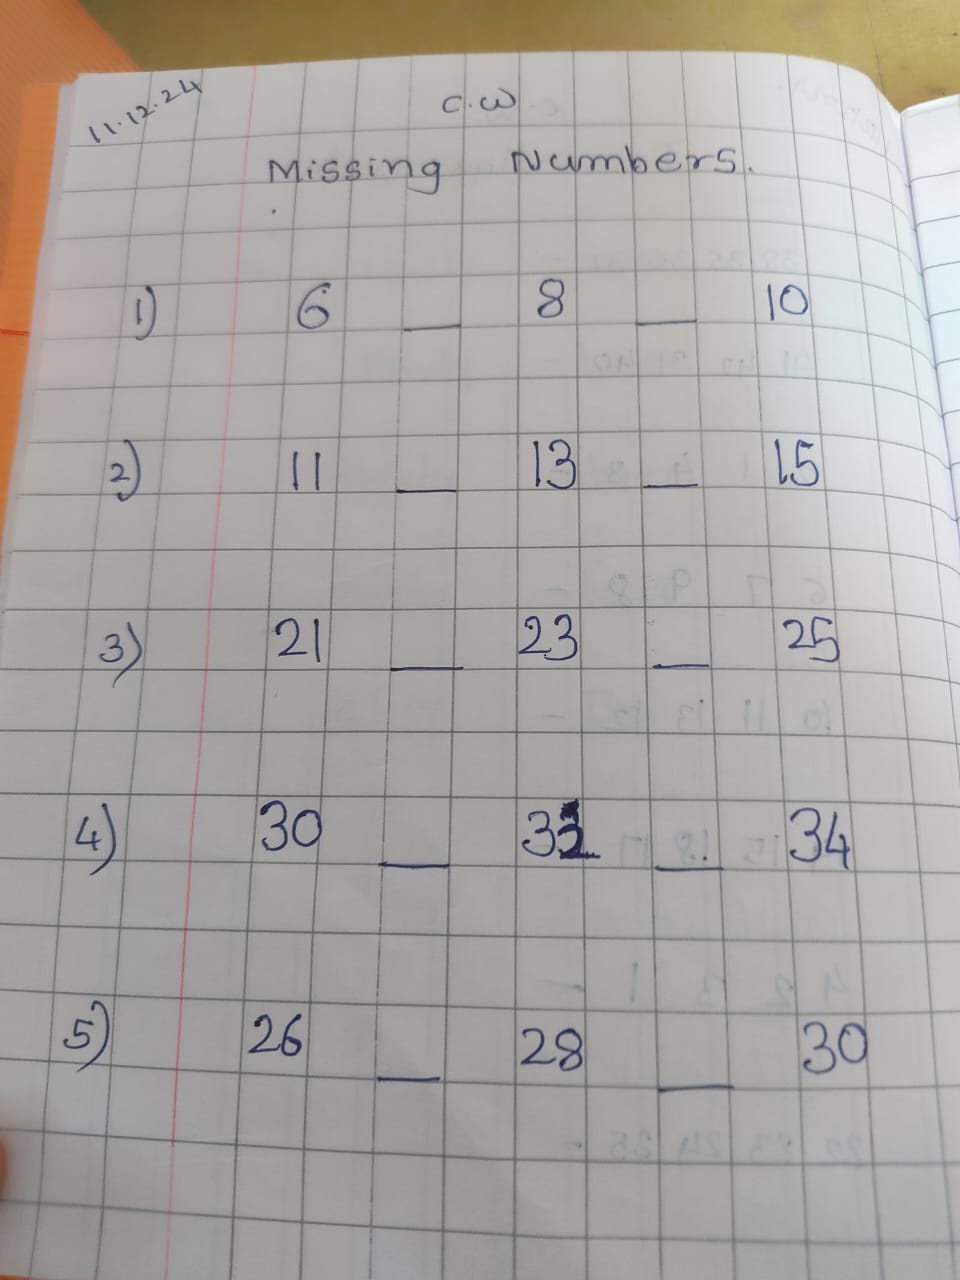 11.12.24
C.W
Missing Numbers.
1) 6 __ 8 __ 10
2) 11 __ 13 __ 15
3) 21 __ 23 __ 25
4) 30 __ 32 __ 34
5) 26 __ 28 __ 30